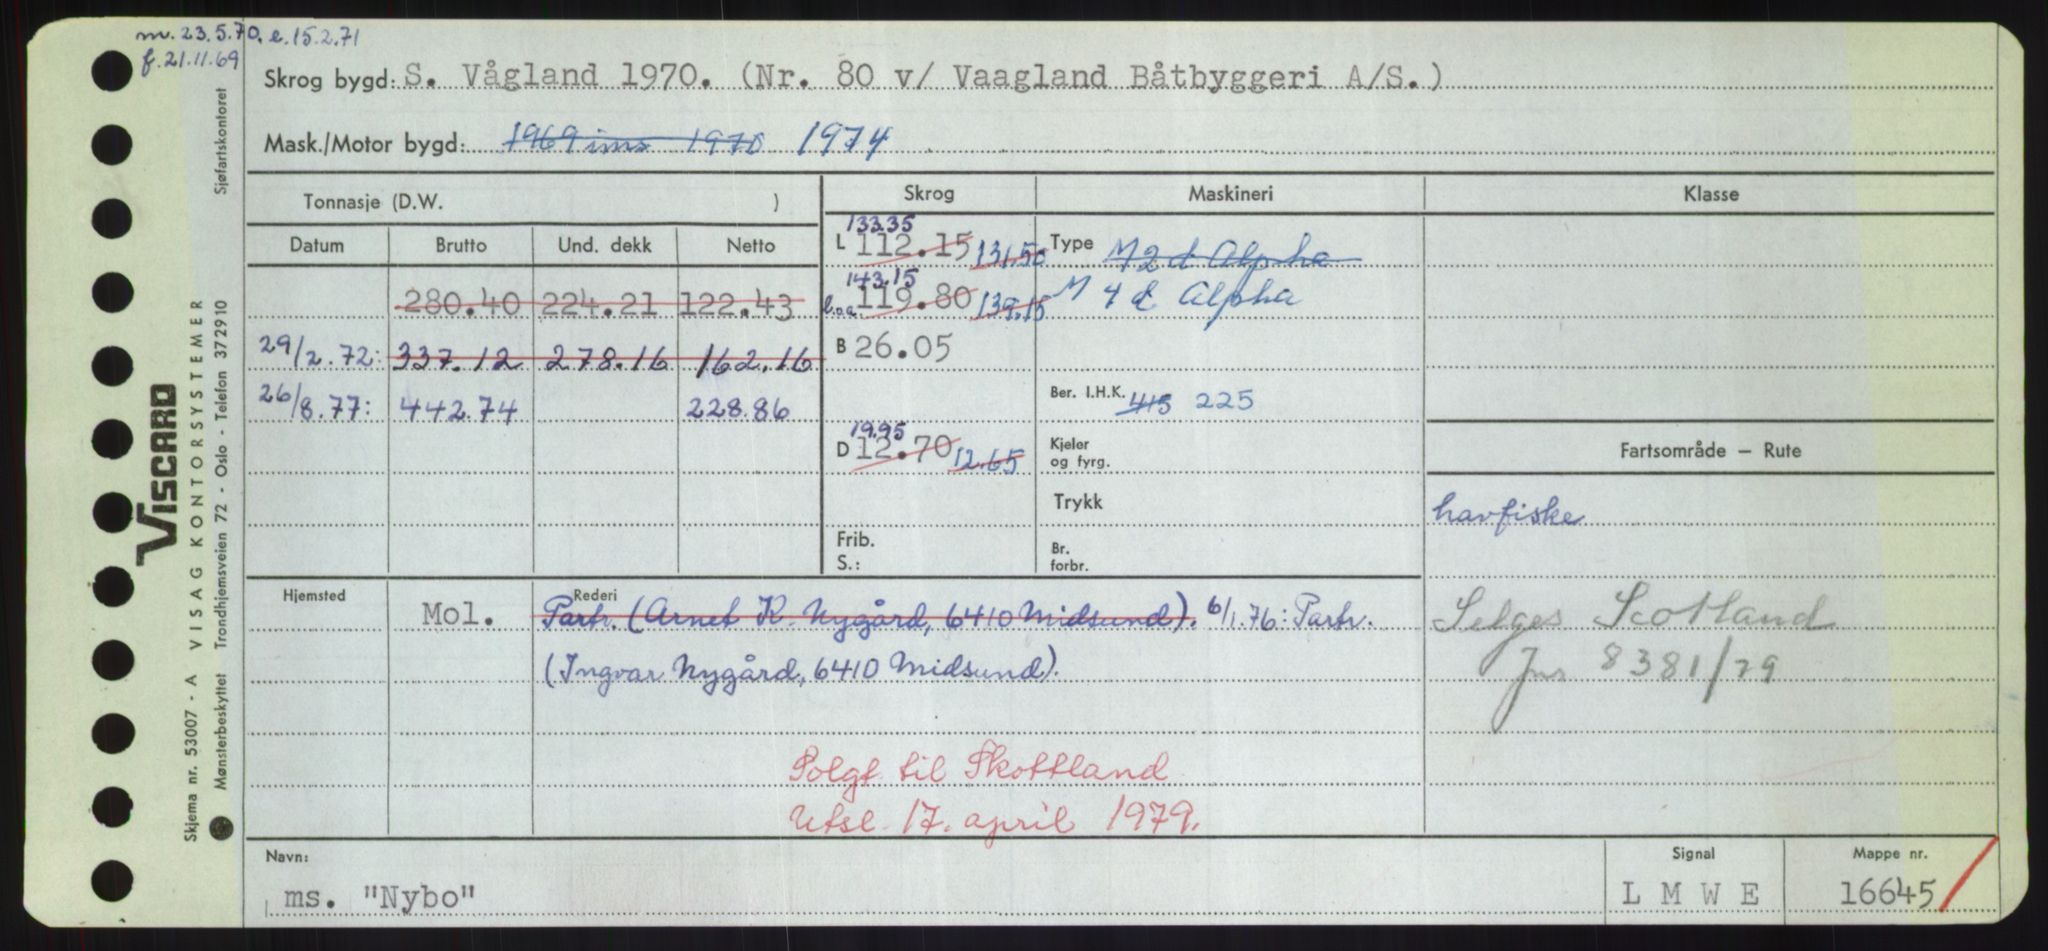 m. 23.5.70. e. 15.2.71
f. 21.11.69
Skrog bygd: S. Vågland 1970. (Nr. 80 v/ Vaagland Båtbyggeri A/S.)
Mask./Motor bygd: 1969 ims 1970 1974
Tonnasje (D.W. )
Skrog Maskineri Klasse
Datum Brutto Und. dekk Netto
280.40 224.21 122.43
29/2.72: 337.12 278.16 162.16
26/8.77: 442.74 228.86
133.35
L 112.15 131.50
143.15
l.o.a. 119.80 139.15
B 26.05
19.95
D 12.70 12.65
Frib.
S.:
Type M 2 d Alpha
M 4 d Alpha
Ber. I.H.K. 415 225
Kjeler
og fyrg.
Trykk
Br.
forbr.
Fartsområde – Rute
havfiske
Selges Scotland
Jnr 8381/79
Hjemsted
Mol.
Rederi
Partr. (Arnet K. Nygård, 6410 Midsund). 6/1.76: Partr.
(Ingvar Nygård, 6410 Midsund).
Solgt til Skottland
Utsl. 17. april 1979.
Navn:
ms. "Nybo"
Signal
L M W E
Mappe nr.
16645
VISCARD
Skjema nr. 53007 - A VISAG KONTORSYSTEMER
Mønsterbeskyttet Trondhjemsveien 72 - Oslo - Telefon 372910 Sjøfartskontoret